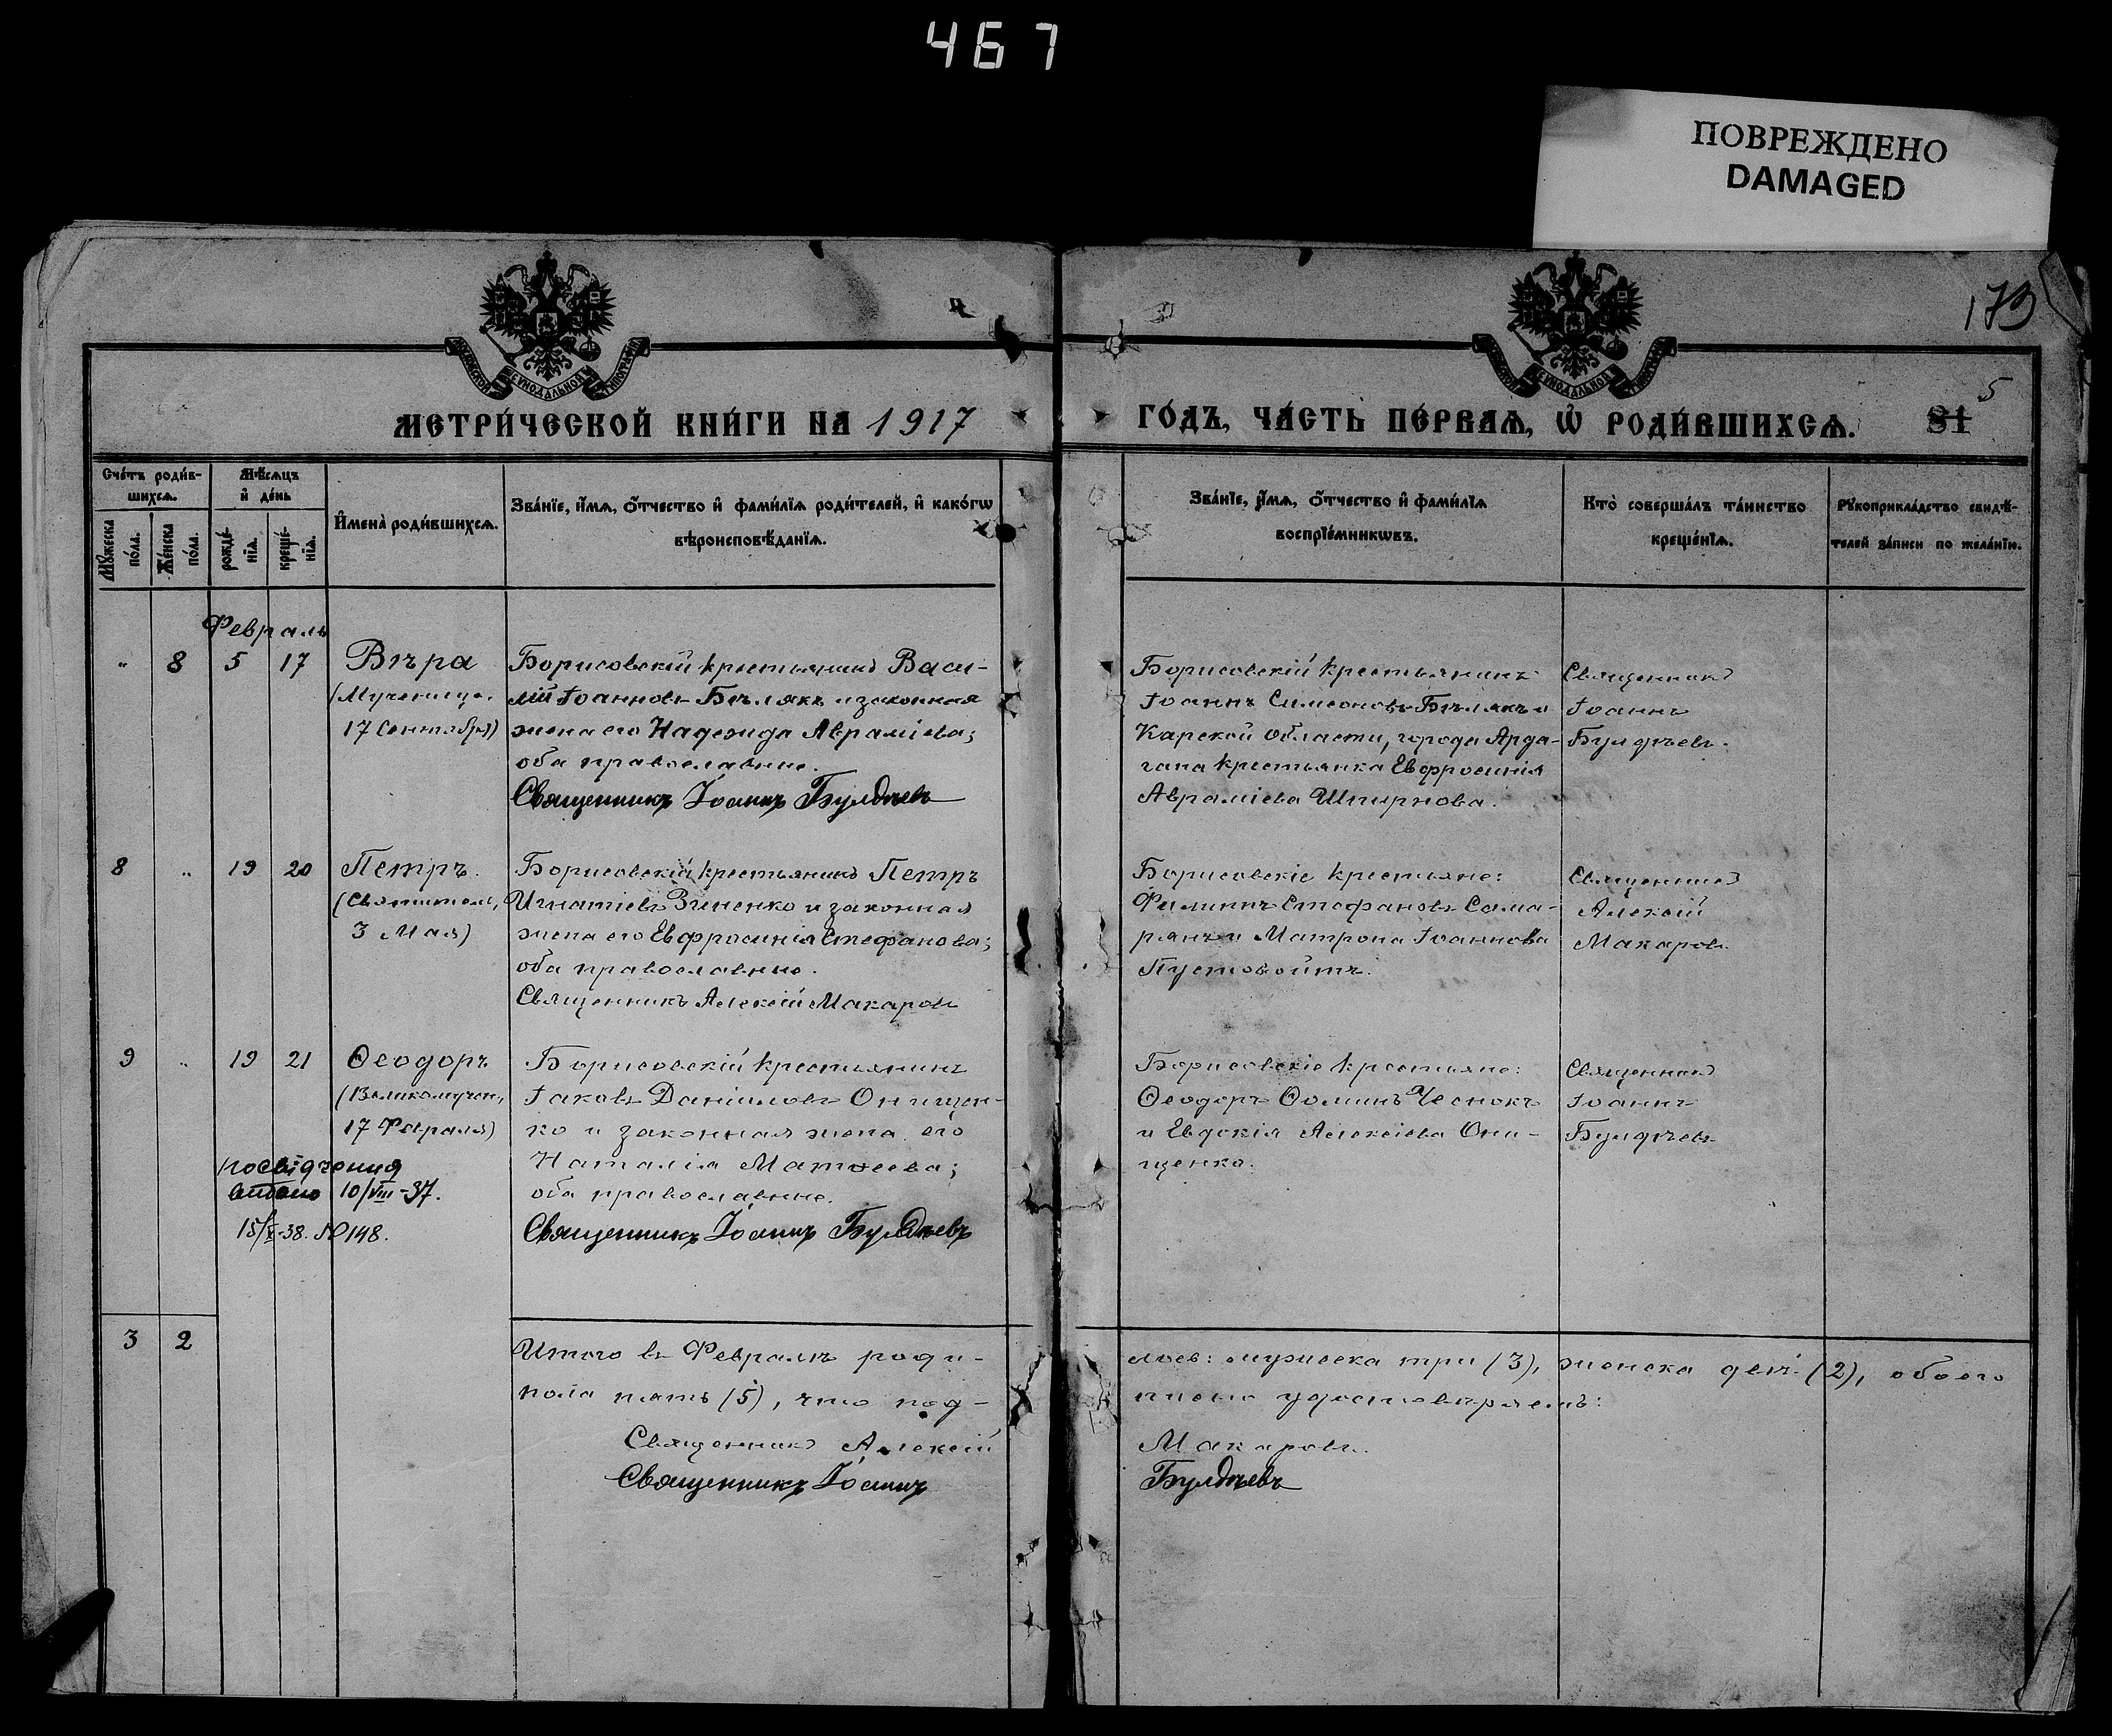 467
ПОВРЕЖДЕНО
DAMAGED
179
5
МЕТРИ́ЧЕСКОЙ КНИ́ГИ НА 1917
ГО́ДЪ, ЧА́СТЬ ПЕ́РВАѦ, Ѽ РОДИ́ВШИХСѦ.
81
Сче́тъ роди́в-
шихсѧ.
Мѣ́сѧцъ
и҆ де́нь
Мꙋ́жеска
по́ла.
Же́нска
по́ла.
рожде́-
нїѧ.
креще́-
нїѧ.
И҆мена̀ роди́вшихсѧ.
Зва́нїе, и҆́мѧ, ѻ҆́тчество и҆ фами́лїѧ роди́телей, и҆ како́гѡ
вѣроисповѣ́данїѧ.
Зва́нїе, и҆́мѧ, ѻ҆́тчество и҆ фами́лїѧ
воспрїе́мникѡвъ.
Кто̀ соверша́лъ та́инство
креще́нїѧ.
Рꙋкоприкла́дство свидѣ́-
телей за́писи по жела́нїю.
Февраль
" 8 5 17
Вѣра
(Мученица.
17 Сентября)
Борисовскій крестьянинъ Васи-
лій Іоанновъ Бѣлякъ и законная
жена его Надежда Авраміева;
оба православные.
Священникъ Іоаннъ Булдѣевъ
Борисовскій крестьянинъ
Іоаннъ Симеоновъ Бѣлякъ и
Карской области, города Арда-
гана крестьянка Евфросинія
Авраміева
Священникъ
Іоаннъ
Булдѣевъ.
8 " 19 20
Петръ.
(Святитель,
3 Мая)
Борисовскій крестьянинъ Петръ
Игнатіевъ Зиненко и законная
жена его Евфросинія Стефанова;
оба православные.
Священникъ Алексій Макаровъ
Борисовскіе крестьяне:
Филиппъ Стефановъ Сама-
рянъ и Матрона Іоаннова
Пустовойтъ.
Священникъ
Алексій
Макаровъ
9 " 19 21
Ѳеодоръ
(Великомучен,
17 Февраля)
посвідчення
видано 10/VIII-37.
15/X-38. № 148.
Борисовскій крестьянинъ
Іаковъ Даніиловъ Онищен-
ко и законная жена его
Наталія Матѳеева;
оба православные.
Священникъ Іоаннъ Булдѣевъ
Борисовскіе крестьяне:
Ѳеодоръ Ѳоминъ Чеснокъ
и Евдокія Алексіева Они-
щенко.
Священникъ
Іоаннъ
Булдѣевъ
3 2
Итого въ Февралѣ роди-
лось: мужеска три (3), женска двѣ (2), обоего
пола пять (5), что под-
писью удостовѣряемъ:
Священникъ Алексій
Макаровъ.
Священникъ Іоаннъ
Булдѣевъ